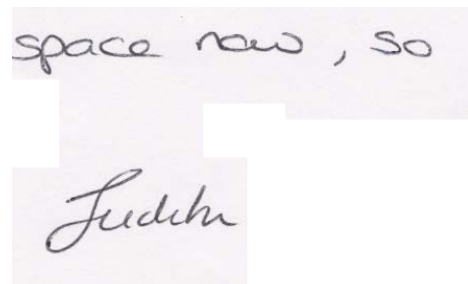 space now, so
Judith